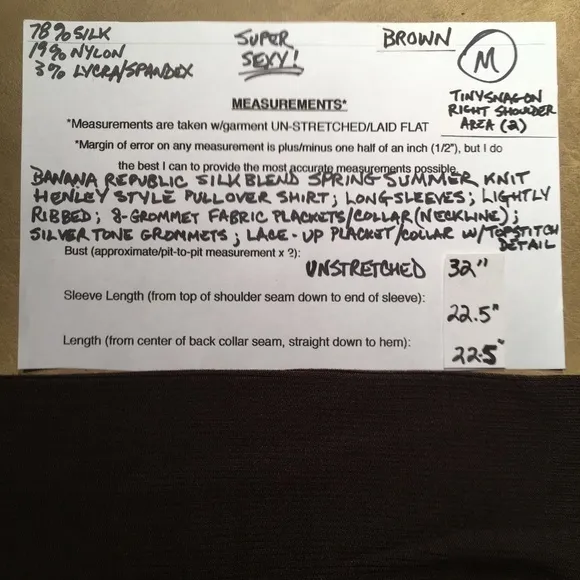 78% SILK
19% NYLON
3% LYCRA/SPANDEX
SUPER
SEXY!
BROWN
M
TINY SNAG ON
RIGHT SHOULDER
AREA (2)
MEASUREMENTS*
*Measurements are taken w/garment UN-STRETCHED/LAID FLAT
*Margin of error on any measurement is plus/minus one half of an inch (1/2"), but I do
the best I can to provide the most accurate measurements possible.
BANANA REPUBLIC SILK BLEND SPRING SUMMER KNIT
HENLEY STYLE PULLOVER SHIRT; LONG-SLEEVES; LIGHTLY
RIBBED; 8-GROMMET FABRIC PLACKETS/COLLAR (NECKLINE);
SILVERTONE GROMMETS; LACE-UP PLACKET/COLLAR W/TOPSTITCH
DETAIL
Bust (approximate/pit-to-pit measurement x 2):
UNSTRETCHED 32"
Sleeve Length (from top of shoulder seam down to end of sleeve):
22.5"
Length (from center of back collar seam, straight down to hem):
22.5"